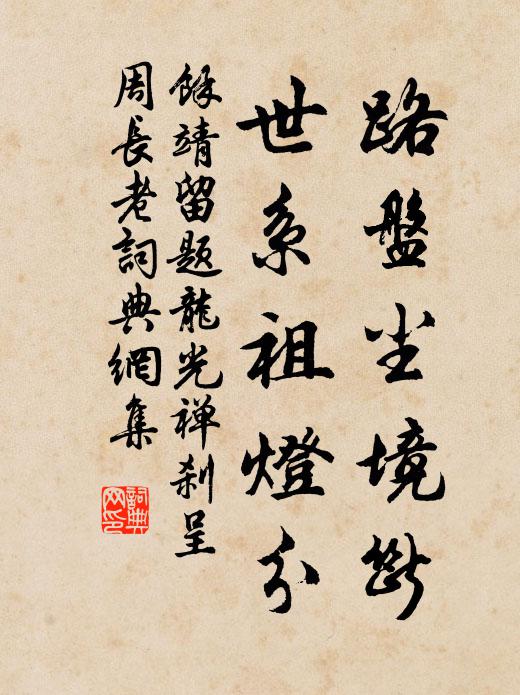 路盤尘境斷
世系祖燈分
餘靖留题龍光禅刹呈
周長老詞典網集
詞典网印